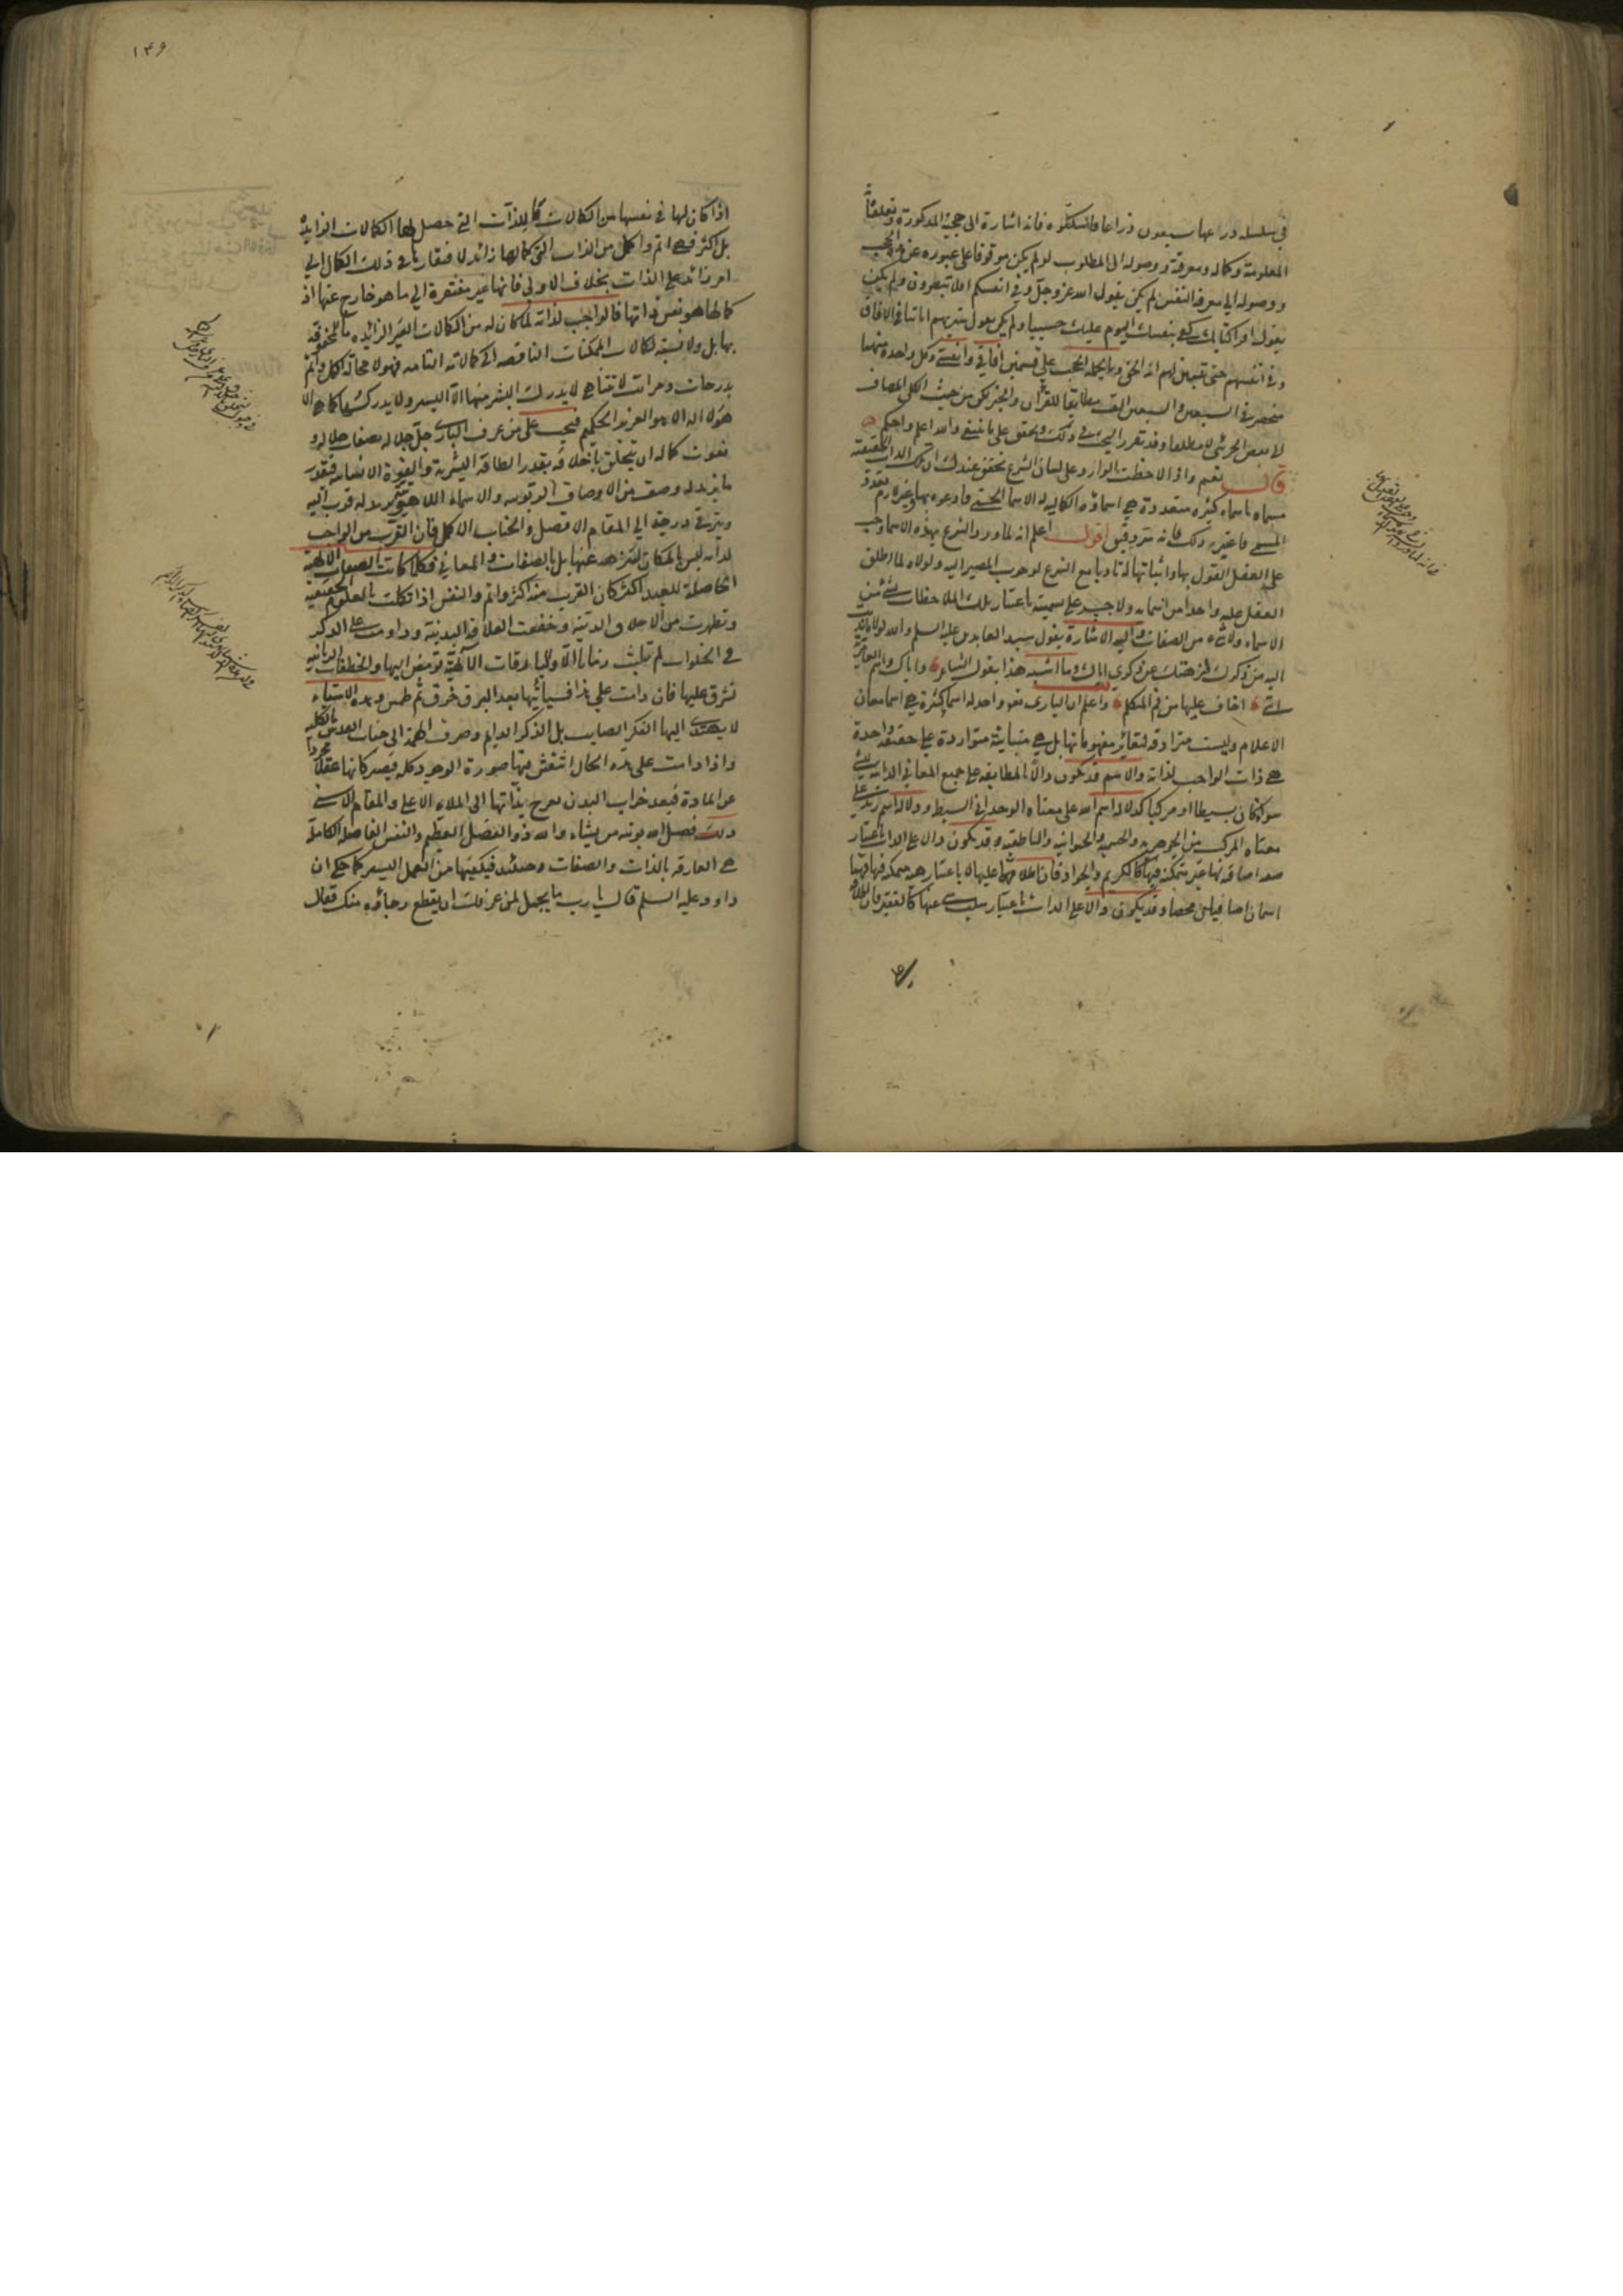 في سلسلة ذرعها سبعون ذراعا فاسلكوه فانه اشارة الى حجبه المذكورة وتعلقاته
المعلومة وكماله ومعرفته ووصوله الى المطلوب لو لم يكن موقوفا على عبوره عن هذه الحجب
ووصوله الى معرفة النفس لم يكن يقول الله عز وجل وفي انفسكم افلا تبصرون ولم يكن
يقول اقرا كتابك كفى بنفسك اليوم عليك حسيبا ولم يكن يقول سنريهم اياتنا في الافاق
وفي انفسهم حتى يتبين لهم انه الحق وبالجملة الحجب على قسمين افاقي وانفسي وكل واحدة منهما
منحصر في السبعين والسبعين الف مطابقا للقران والخبر يكون من حيث الكلي المضاف
لا بعض الجزئي لا مطلقا وقد تقرر البحث في ذلك وتحقق على ما ينبغي والله اعلم واحكم
قال نعم واذا لاحظت الوارد على لسان الشرع تحقق عندك ان تلك الذات الحقيقية
مسماة باسماء كثيرة متعددة هي اسماؤه الكمالية له الاسماء الحسنى فادعوه بها وغيره
المسمى ما غيره وذلك فانه سر دقيق اقول اعلم انه لما ورد الشرع بهذه الاسماء وجب
على العقل القول بها واثباتها له تاديا مع الشرع لوجوب المصير اليه ولولاه لما اطلق
العقل عليه واحدا من اسمائه ولا يجب على تسميته باعتبار تلك الملاحظات بشئ من
الاسماء ولا شئ من الصفات واليه الاشارة بقول سيد العابدين عليه السلم والله لولا
اليه من ذكرك لنزهتك عن ذكري اياك وما اشبه هذا بقول الشاعر واياك واسم العامرية
انني اخاف عليها من فم المتكلم واعلم ان الباري تعالى واحد له اسماء كثيرة هي اسما معان
الاعلام وليست مترادفة لتغاير مفهوماتها بل هي متباينة متواردة على حقيقة واحدة
هي ذات الواجب لذاته والاسم قد يكون دالا بالمطابقة على جميع المعاني الذاتية
سواء كان بسيطا او مركبا كدلالة اسم الله على معناه الوحداني البسيط ودلالة اسم زيد على
معناه المركب من الجوهرية والجسمية والحيوانية والناطقية وقد يكون دالا على الذات باعتبار
صفة اضافية غير متمكنة فيها كالكريم والجواد فان اطلاقهما عليها لا باعتبار هيئة متمكنة فيها
اسمان اضافيان محضا وقد يكون دالا على الذات باعتبار سلب شئ عنها كالفقير فان اطلاقه
۱۴۶
اذا كان لها في نفسها من الكمالات كما للذات التي حصل لها الكمالات الزايدة
بل اكثر فهي اتم واكمل من الذات التي كمالها زائد لافتقارها في ذلك الكمال الى
امر زائد على الذات بخلاف الاولى فانها غير مفتقرة الى ما هو خارج عنها اذ
كمالها هو نفس ذاتها فالواجب لذاته لما كان له من الكمالات الغير الزايدة
بها بل ولا نسبة لكمالات الممكنات الناقصة الى كمالاته التامة فهو لا محالة اكمل واتم
بدرجات ومراتب لا تتناهي لا يدرك البشر منها الا اليسير ولا يدرك كنهها كما هي الا
هو لا اله الا هو العزيز الحكيم فيجب على من عرف الباري جل جلاله بصفات جلاله و
نعوت كماله ان يتخلق باخلاقه بقدر الطاقة البشرية والقوة الانسانية فبقدر
ما يزيد له وصف من الاوصاف الربوبية والاسماء اللاهوتية يزيد له قرب اليه
ويترقى درجة الى المقام الافضل والجناب الاكمل فان القرب من الواجب
لذاته ليس بالمكان لتنزهه عنها بل بالصفات والمعاني فكلما كانت الصفات الالهية
الحاصلة للعبد اكثر كان القرب منه اكثر واتم والنفس اذا تكملت بالعلوم الحقيقية
وتطهرت من الاخلاق الدنية وخففت العلاقة البدنية وداومت على الذكر
في الخلوات لم تلبث زمانا الا والبارقات الالهية تومض اليها والخطفات الربانية
تشرق عليها فان دامت على هذا فسياتيها بعد البرق خرق ثم طمس وهذه الاشياء
لا يهتدى اليها الفكر الصايب بل الذكر الدايم وصرف الهمة الى جناب القدس بالكلية
واذا دامت على هذه الحال انتقش فيها صورة الوجود كله فيصير كانها عقلا مجردا
عن المادة فبعد خراب البدن تعرج بذاتها الى الملاء الاعلى والمقام الاسنى
ذلك فضل الله يؤتيه من يشاء والله ذو الفضل العظيم والنفس الفاضلة الكاملة
هي العارفة بالذات والصفات وحينئذ فيكفيها من العمل اليسير كما حكي ان
داود عليه السلم قال يا رب ما يجمل لمن عرفك ان يقطع رجاؤه منك فقال